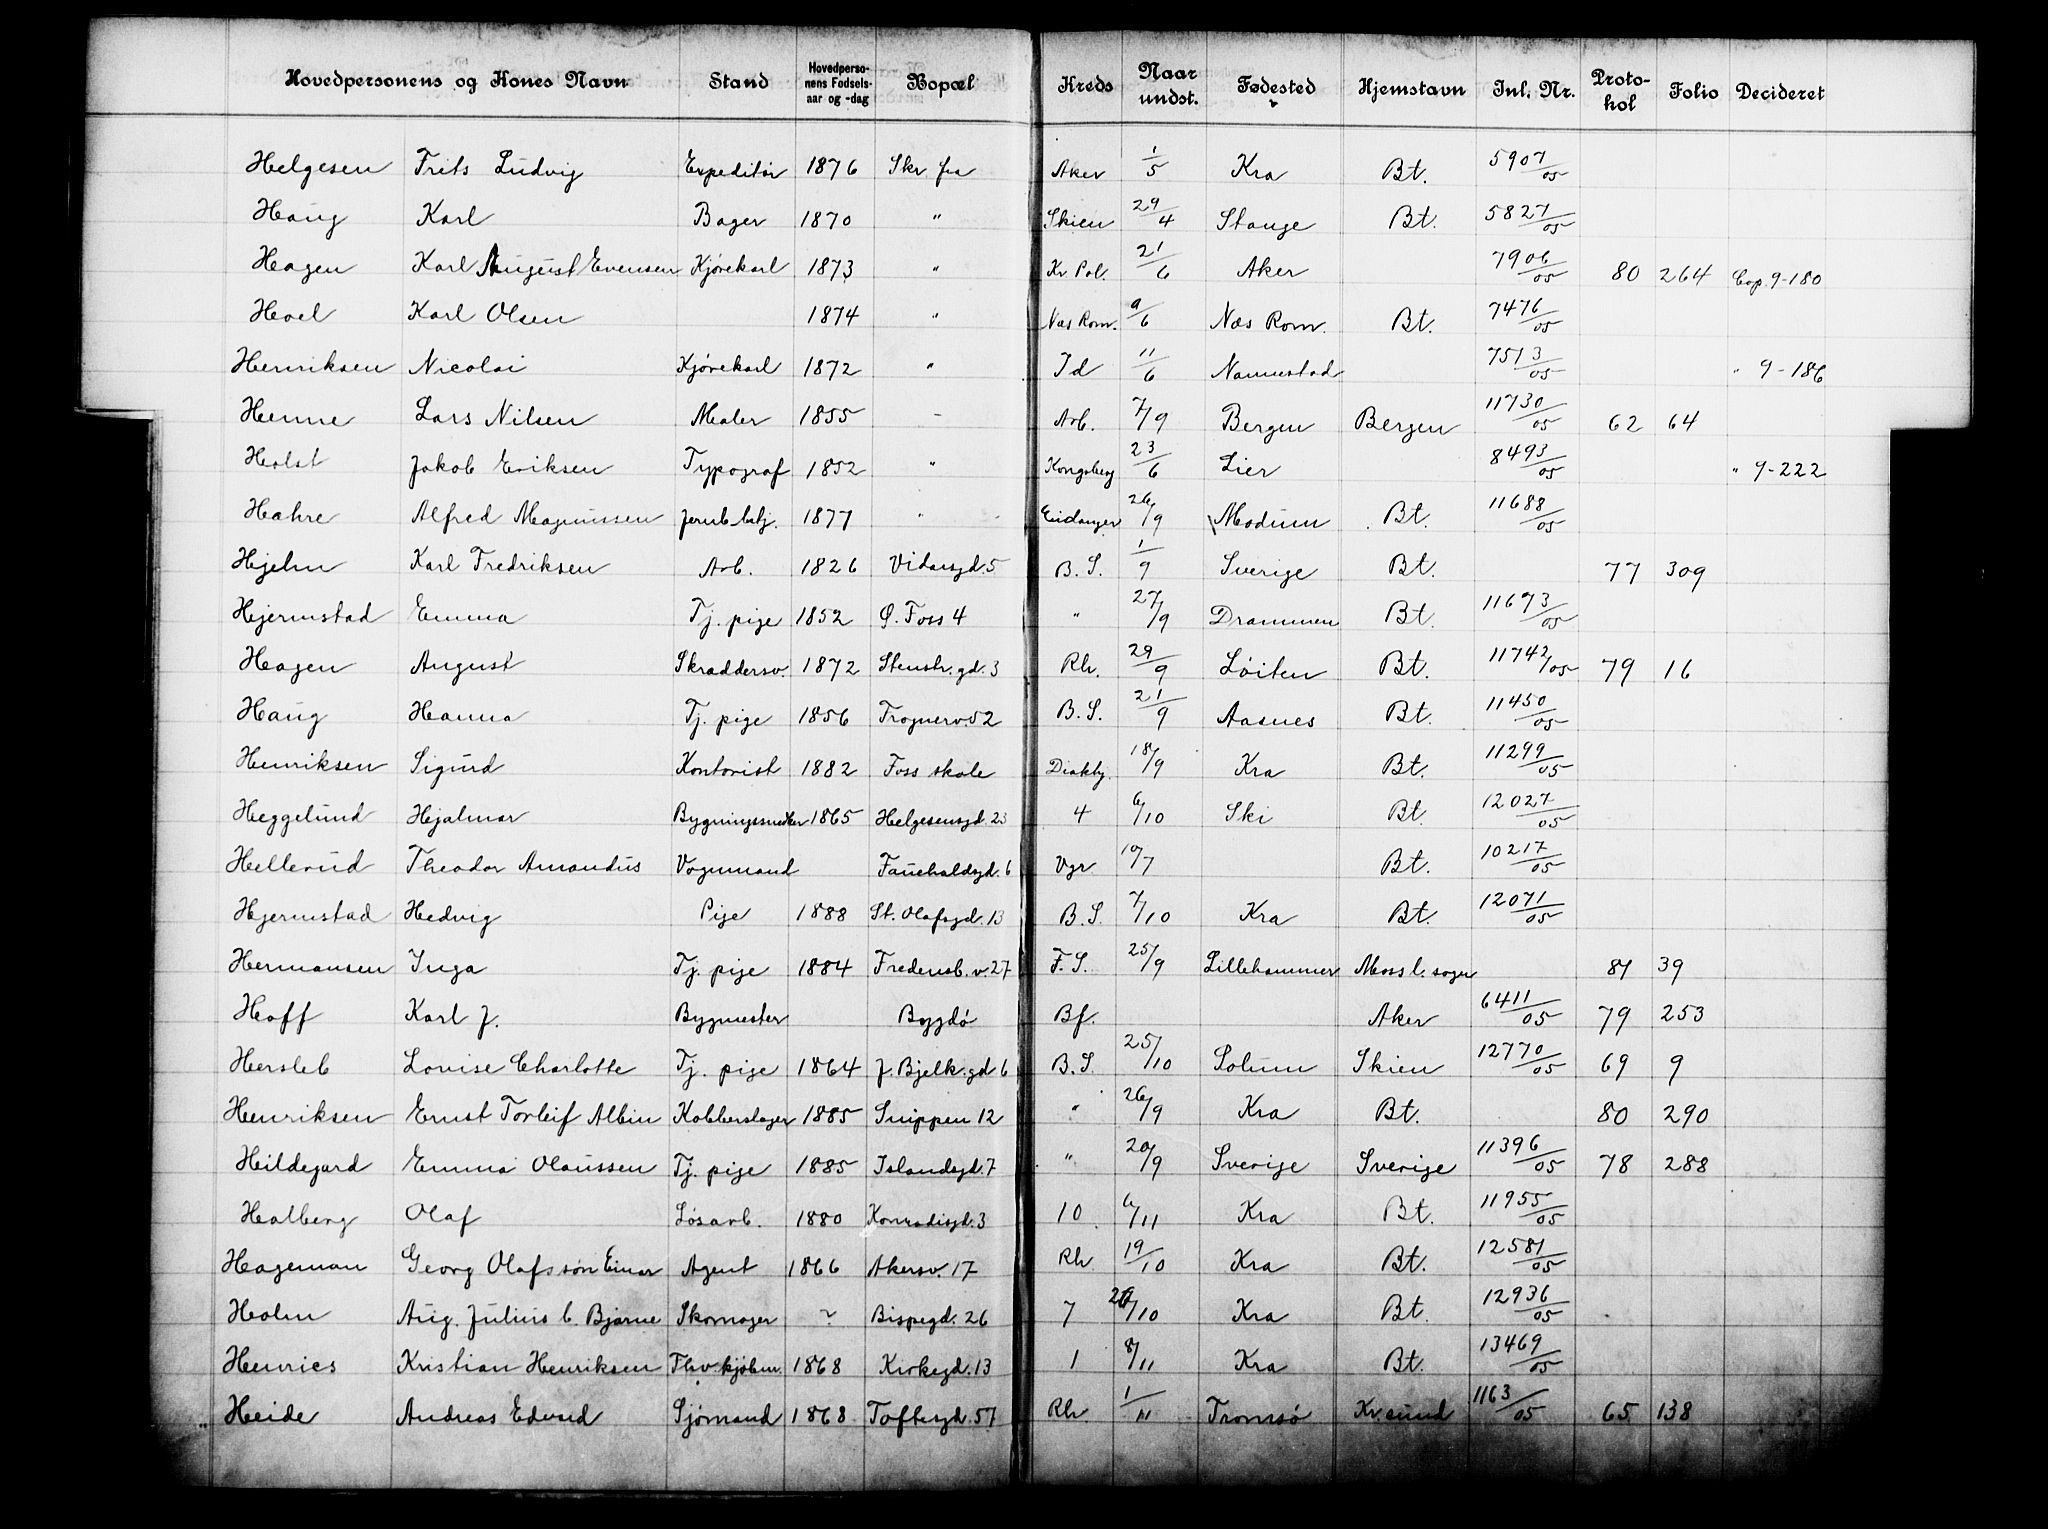 Hovedpersonens og Kones Navn Stand Hovedpersonens Fødselsaar og -dag Bopæl Kreds Naar undst. Fødested Hjemstavn Inl. Nr. Protokol Folio Decideret
Helgesen Frits Ludvig Expeditør 1876 Skr. fra Aker 1/5 Kra Bt. 5907/05
Haug Karl Bager 1870 " Skien 29/4 Stange Bt. 5827/05
Hagen Karl August Evensen Kjørekarl 1873 " Kr. Pol. 21/6 Aker 7906/05 80 264 Cop. 9-180
Hoel Karl Olsen 1874 " Næs Rom. 9/6 Næs Rom. Bt. 7476/05
Henriksen Nicolai Kjørekarl 1872 " Id 11/6 Nannestad 7513/05 " 9-186
Henne Lars Nilsen Maler 1855 - Arb. 7/9 Bergen Bergen 11730/05 62 64
Holst Jakob Eriksen Typograf 1852 " Kongsberg 23/6 Lier 8493/05 " 9-222
Hahre Alfred Magnussen Jernb.betj. 1877 " Eidanger 26/9 Modum Bt. 11688/05
Hjelm Karl Fredriksen Arb. 1826 Vidarsgd. 5 B.S. 1/9 Sverige Bt. 77 309
Hjermstad Emma Tj. pige 1852 Ø. Foss 4 " 27/9 Drammen Bt. 11673/05
Hagen August Skræddersv. 1872 Stenstr. gd. 3 Rh. 29/9 Løiten Bt. 11742/05 79 16
Haug Hanna Tj. pige 1856 Frognerv. 52 B.S. 21/9 Aasnes Bt. 11450/05
Henriksen Sigurd Kontorist 1882 Foss skole Diakhj. 18/9 Kra Bt. 11299/05
Heggelund Hjalmar Bygningssnedker 1865 Helgesensgd. 23 4 6/10 Ski Bt. 12027/05
Hellerud Theodor Amandus Vognmand Fauchaldsgd. 6 Vgr. 10/7 Bt. 10217/05
Hjermstad Hedvig Pige 1888 St. Olafsgd. 13 B.S. 7/10 Kra Bt. 12071/05
Hermansen Inga Tj. pige 1884 Fredensb. v. 27 F.S. 25/9 Lillehammer Moss l. sogn 81 39
Hoff Karl J. Bygmester Bygdö Bf. Aker 6411/05 79 253
Hersleb Lovise Charlotte Tj. pige 1864 J. Bjelk. gd 6 B.S. 25/10 Solum Skien 12770/05 69 9
Henriksen Ernst Torleif Albin Kobberslager 1885 Snippen 12 " 26/9 Kra Bt. 80 290
Hildegard Emma Olaussen Tj. pige 1885 Islandsgd. 7 " 20/9 Sverige Sverige 11396/05 78 288
Halberg Olaf Løsarb. 1880 Konradisgd. 3 10 6/11 Kra Bt. 11955/05
Hageman Georg Olafssøn Einar Agent 1866 Akersv. 17 Rh. 19/10 Kra Bt. 12581/05
Holm Aug. Julius C. Bjarne Skomager ? Bispegd. 26 7 /10 Kra Bt. 12936/05
Henries Kristian Henriksen Fhv. kjøbm. 1868 Krokegd. 13 1 8/11 Kra Bt. 13469/05
Heide Andreas Edvard Sjømand 1868 Toftesgd. 57 Rh. 1/11 Tromsø Kr. sund 1163/05 65 138